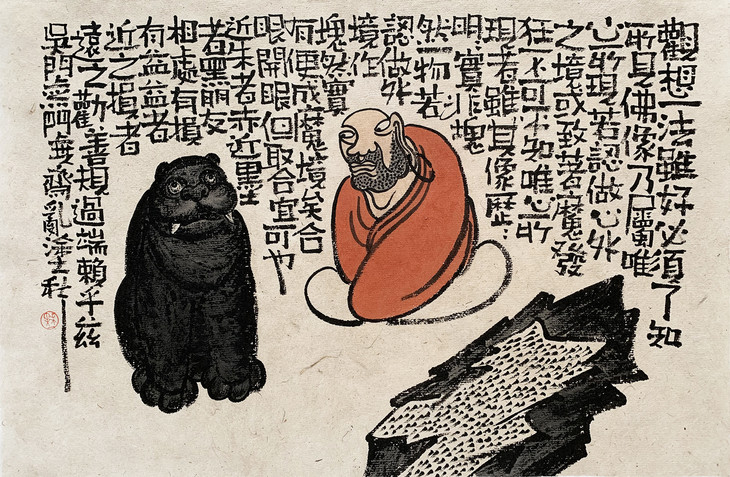 觀想一法雖好必須了知
所見佛像乃屬唯
心所現若認做心外
之境或致著魔發
狂不可不知唯心所
現者雖其像歷:
明:實非塊
然一物若
認做外
境作
塊然實
有便成魔境矣合
眼開眼但取合宜可也
近朱者赤近墨
者黑朋友
相處有損
有益益者
近之損者
遠之勸善規過端賴乎茲
吳門無門無亂塗